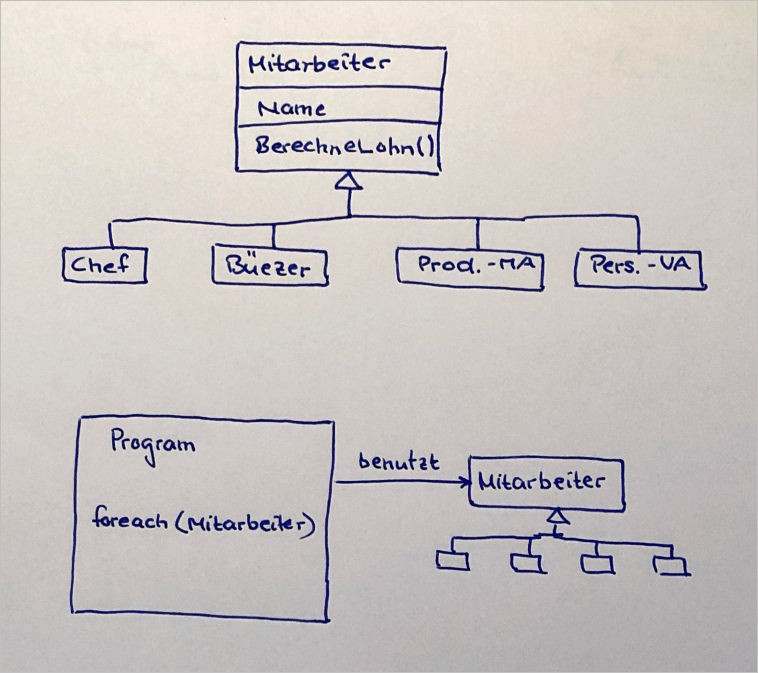 Mitarbeiter
Name
BerechneLohn()
Chef
Büezer
Prod.-MA
Pers.-VA
Program
benutzt
Mitarbeiter
foreach (Mitarbeiter)